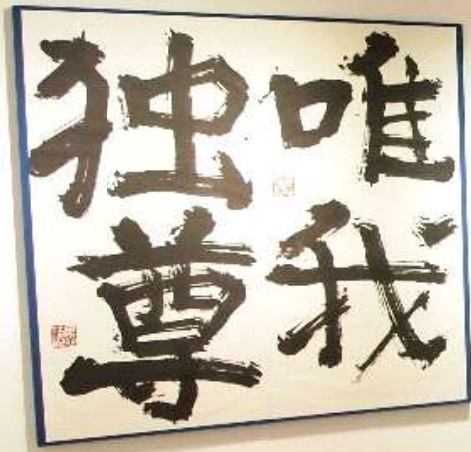 唯我
独尊